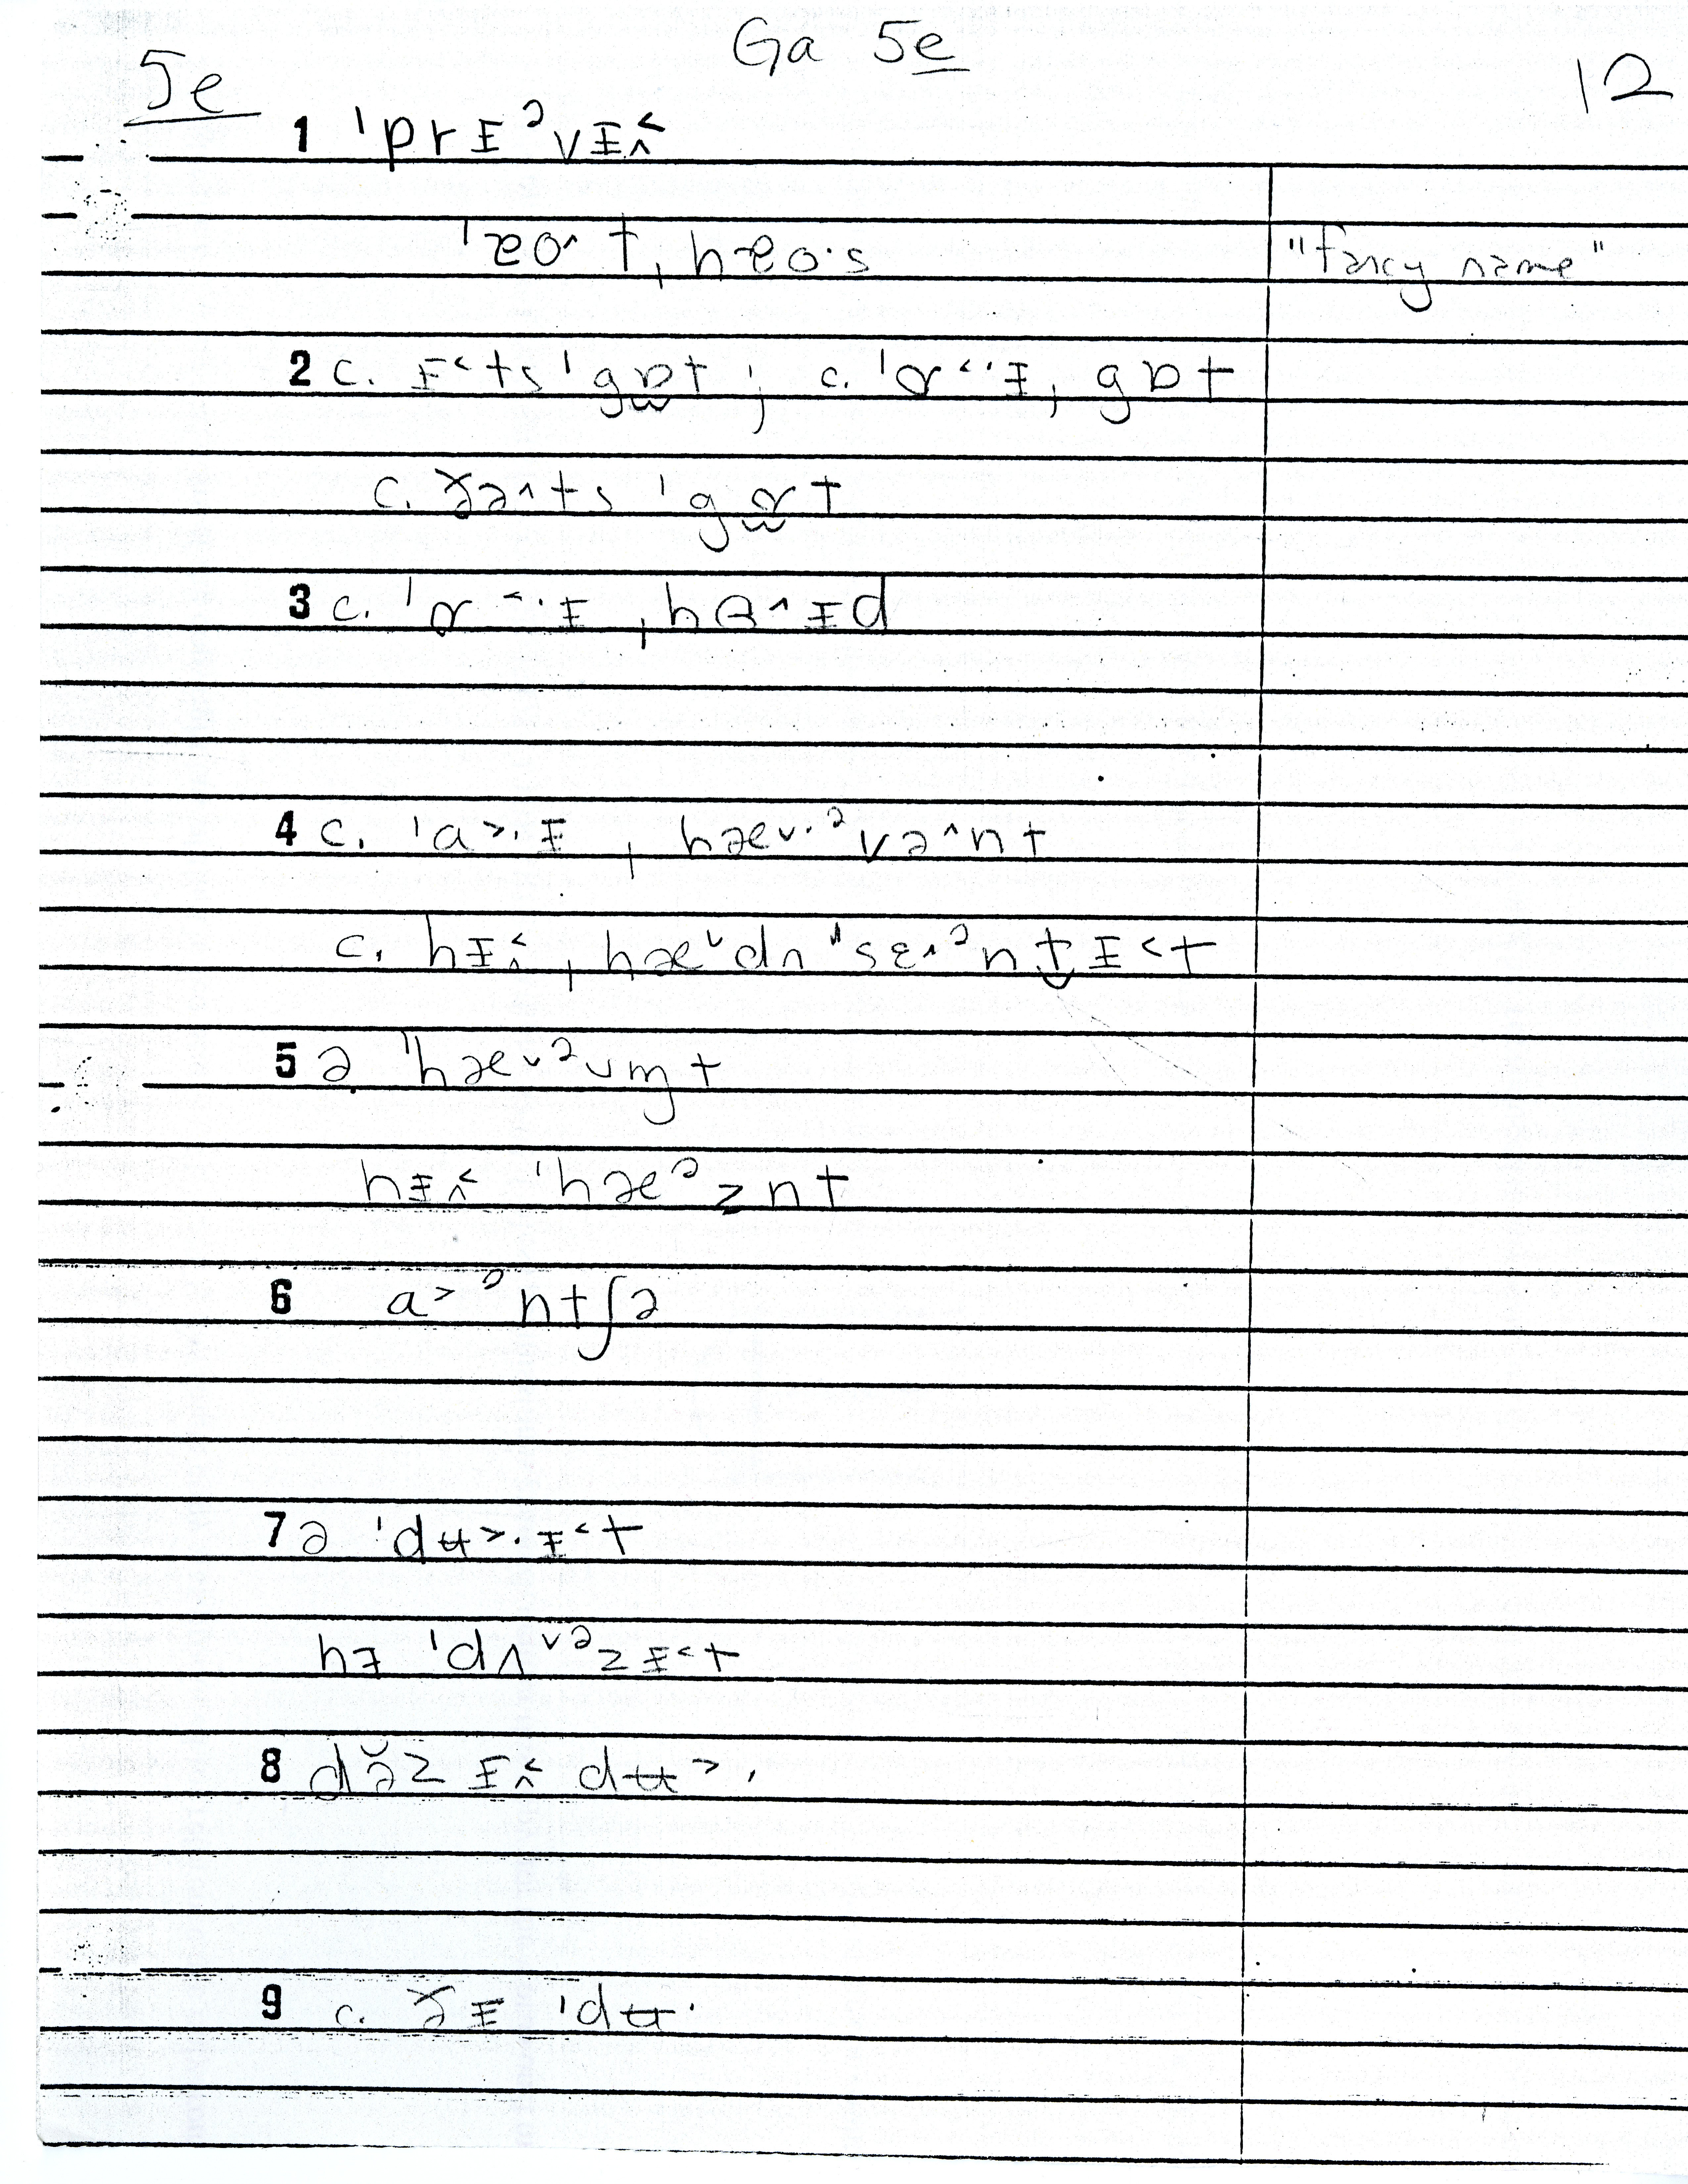 Ga 5e
5e
12
1 ˈprɪᵊvɪ˄˂
ˈæo˄t ˌhæo·s "fancy name"
2 c. ɪ˂ts ˈgɒt ; c. ˈɑ˂·ɪ ˌgɒt
c. ðə˄ts ˈgɑt
3 c. ˈɑ˂·ɪ ˌhɑ˄ɪd
4 c. ˈa˃·ɪ ˌhæ˅·ᵊvə˄nt
c. hɪ˄˂ ˌhæ˅dn ˈsɛ˄ᵊntɪ˂t
5 ə ˈhæ˅ᵊvm̩t
hɪ˄˂ ˈhæᵊznt
6 a˃ᵊntʃə
7 ə ˈdʉ˃·ɪ˂t
hɪ ˈdʌ˅ᵊzɪ˂t
8 də̆z ɪ˄˂ dʉ˃·
9 c. ðɪ ˈdʉ·